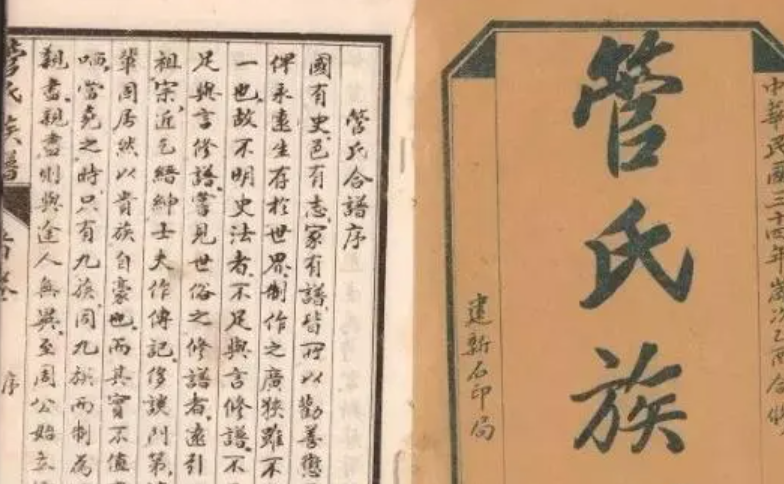 中華民國三十四年歲次乙酉合修
管氏族
建新石印局
管氏合譜序
國有史邑有志家有譜皆所以勸善懲
俾永遠生存於世界制作之廣狹雖不
一也故不明史法者不足與言修譜不
足與言修譜嘗見世俗之修譜者遠引
祖宗近乞縉紳士夫作傳記侈談門第
輩固居然以貴族自豪也而其實不值
哂當堯之時只有九族同九族而制為
親盡親盡則與途人無異至周公始立
管氏族譜 首卷 序